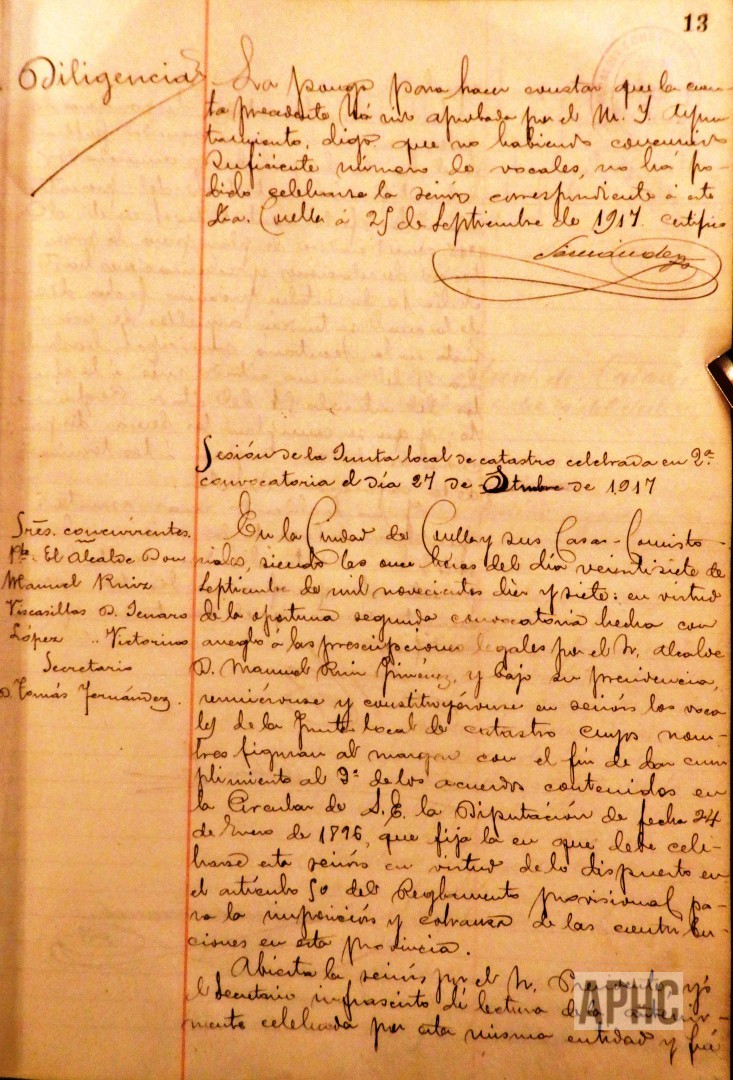 13
Diligencia
La pongo para hacer constar que la cuen-
ta precedente, há sido aprobada por el M. I. Ayun
tamiento, digo que no habiendo concurrido
suficiente número de vocales, no há po-
dido celebrarse la sesión correspondiente á este
día. Corella á 25 de Septiembre de 1917. certifico
Fernández
Sesión de la Junta local de catastro celebrada en 2ª
convocatoria el día 27 de Stmbre de 1917
Sres. concurrentes.
Pte. El Alcalde Don
Manuel Ruiz
Viscasillas D. Jenaro
López .. Victorino
Secretario
D. Tomás Fernández.
En la Ciudad de Corella y sus Casas-Consisto
riales, siendo las once horas del día veintisiete de
Septiembre de mil novecientos diez y siete: en virtud
de la oportuna segunda convocatoria hecha con
arreglo á las prescripciones legales por el Sr. Alcalde
D. Manuel Ruiz Giménez, y bajo su presidencia,
reuniéronse y constituyéronse en sesión los voca
les de la Junta local de catastro cuyos nom-
bres figuran al margen con el fin de dar cum
plimiento al 3º de los acuerdos contenidos en
la Circular de S.E. la Diputación de fecha 24
de Enero de 1896, que fija la en que debe cele-
brarse esta sesión en virtud de lo dispuesto en
el artículo 50 del Reglamento provisional pa-
ra la imposición y cobranza de las contribu-
ciones en esta provincia.
Abierta la sesión por el Sr. Presidente yó
el Secretario infrascrito dí lectura de la anterior-
mente celebrada por esta misma entidad y fué
APHC